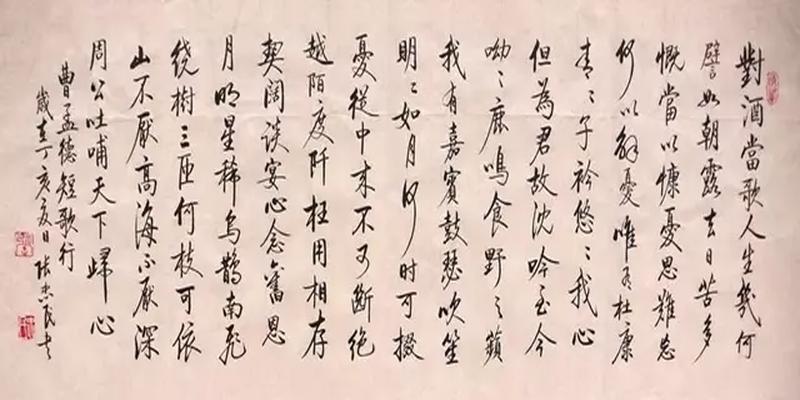 對酒當歌人生幾何
譬如朝露去日苦多
慨當以慷憂思難忘
何以解憂唯有杜康
青〻子衿悠〻我心
但為君故沈吟至今
呦〻鹿鳴食野之蘋
我有嘉賓鼓瑟吹笙
明〻如月何时可掇
憂從中来不可斷絕
越陌度阡枉用相存
契闊談宴心念舊恩
月明星稀烏鵲南飛
绕樹三匝何枝可依
山不厭高海不厭深
周公吐哺天下歸心
曹孟德短歌行
歲在丁亥夏日张杰民书